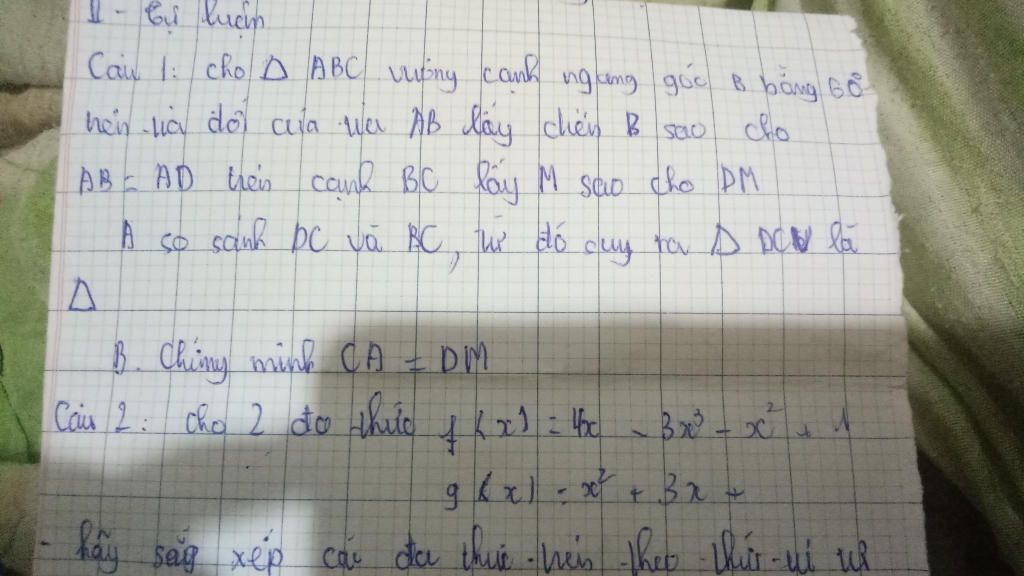 II - tự luận
Câu 1: cho Δ ABC vuông cạnh ngang góc B bằng 60
trên tia đối của tia AB lấy B sao cho
AB = AD trên cạnh BC lấy M sao cho DM
A so sánh DC và BC, từ đó suy ra Δ là
Δ
B. Chứng minh CA = DM
Câu 2: cho 2 đa thức f(x) = 4x - 3x³ - x² + 1
g(x) = x² + 3x +
- hãy xếp các đa thức trên theo thứ